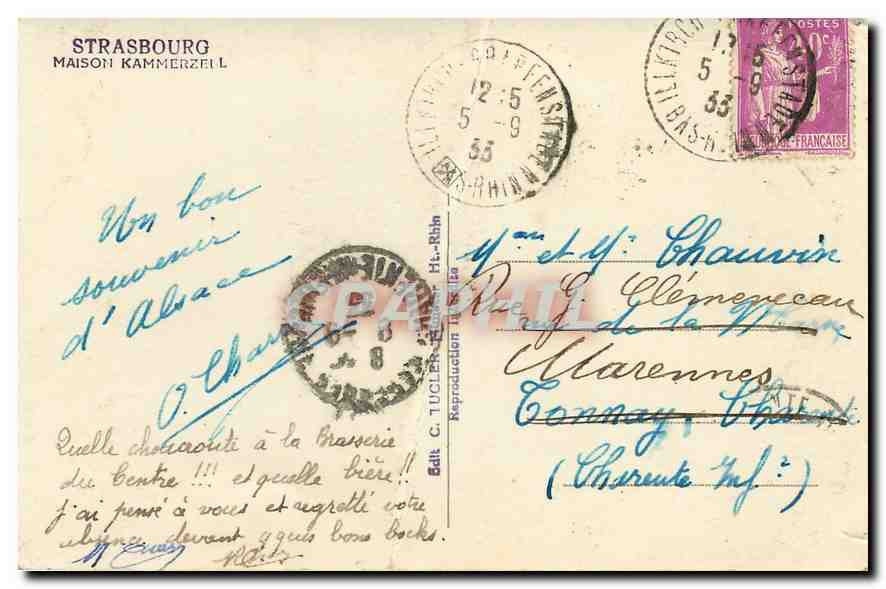 STRASBOURG
MAISON KAMMERZELL
ILLKIRCH-GRAFFENSTADEN
12:5
5 -9
33
BAS-RHIN
POSTES
FRANÇAISE
Un bon
souvenir
d'Alsace
O. Char
Quelle choucroute à la Brasserie
du Centre !!! et quelle bière!!
j'ai pensé à vous et regretté votre
absence devant qques bons bocks.
Edit. C. TUCLER Ht.-Rhin
Reproduction Interdite
CPAPHIL
Mme et Mr Chauvin
Rue G. Clémenceau
Rue de la
Marennes
Tonnay, Charente
(Charente Infre)